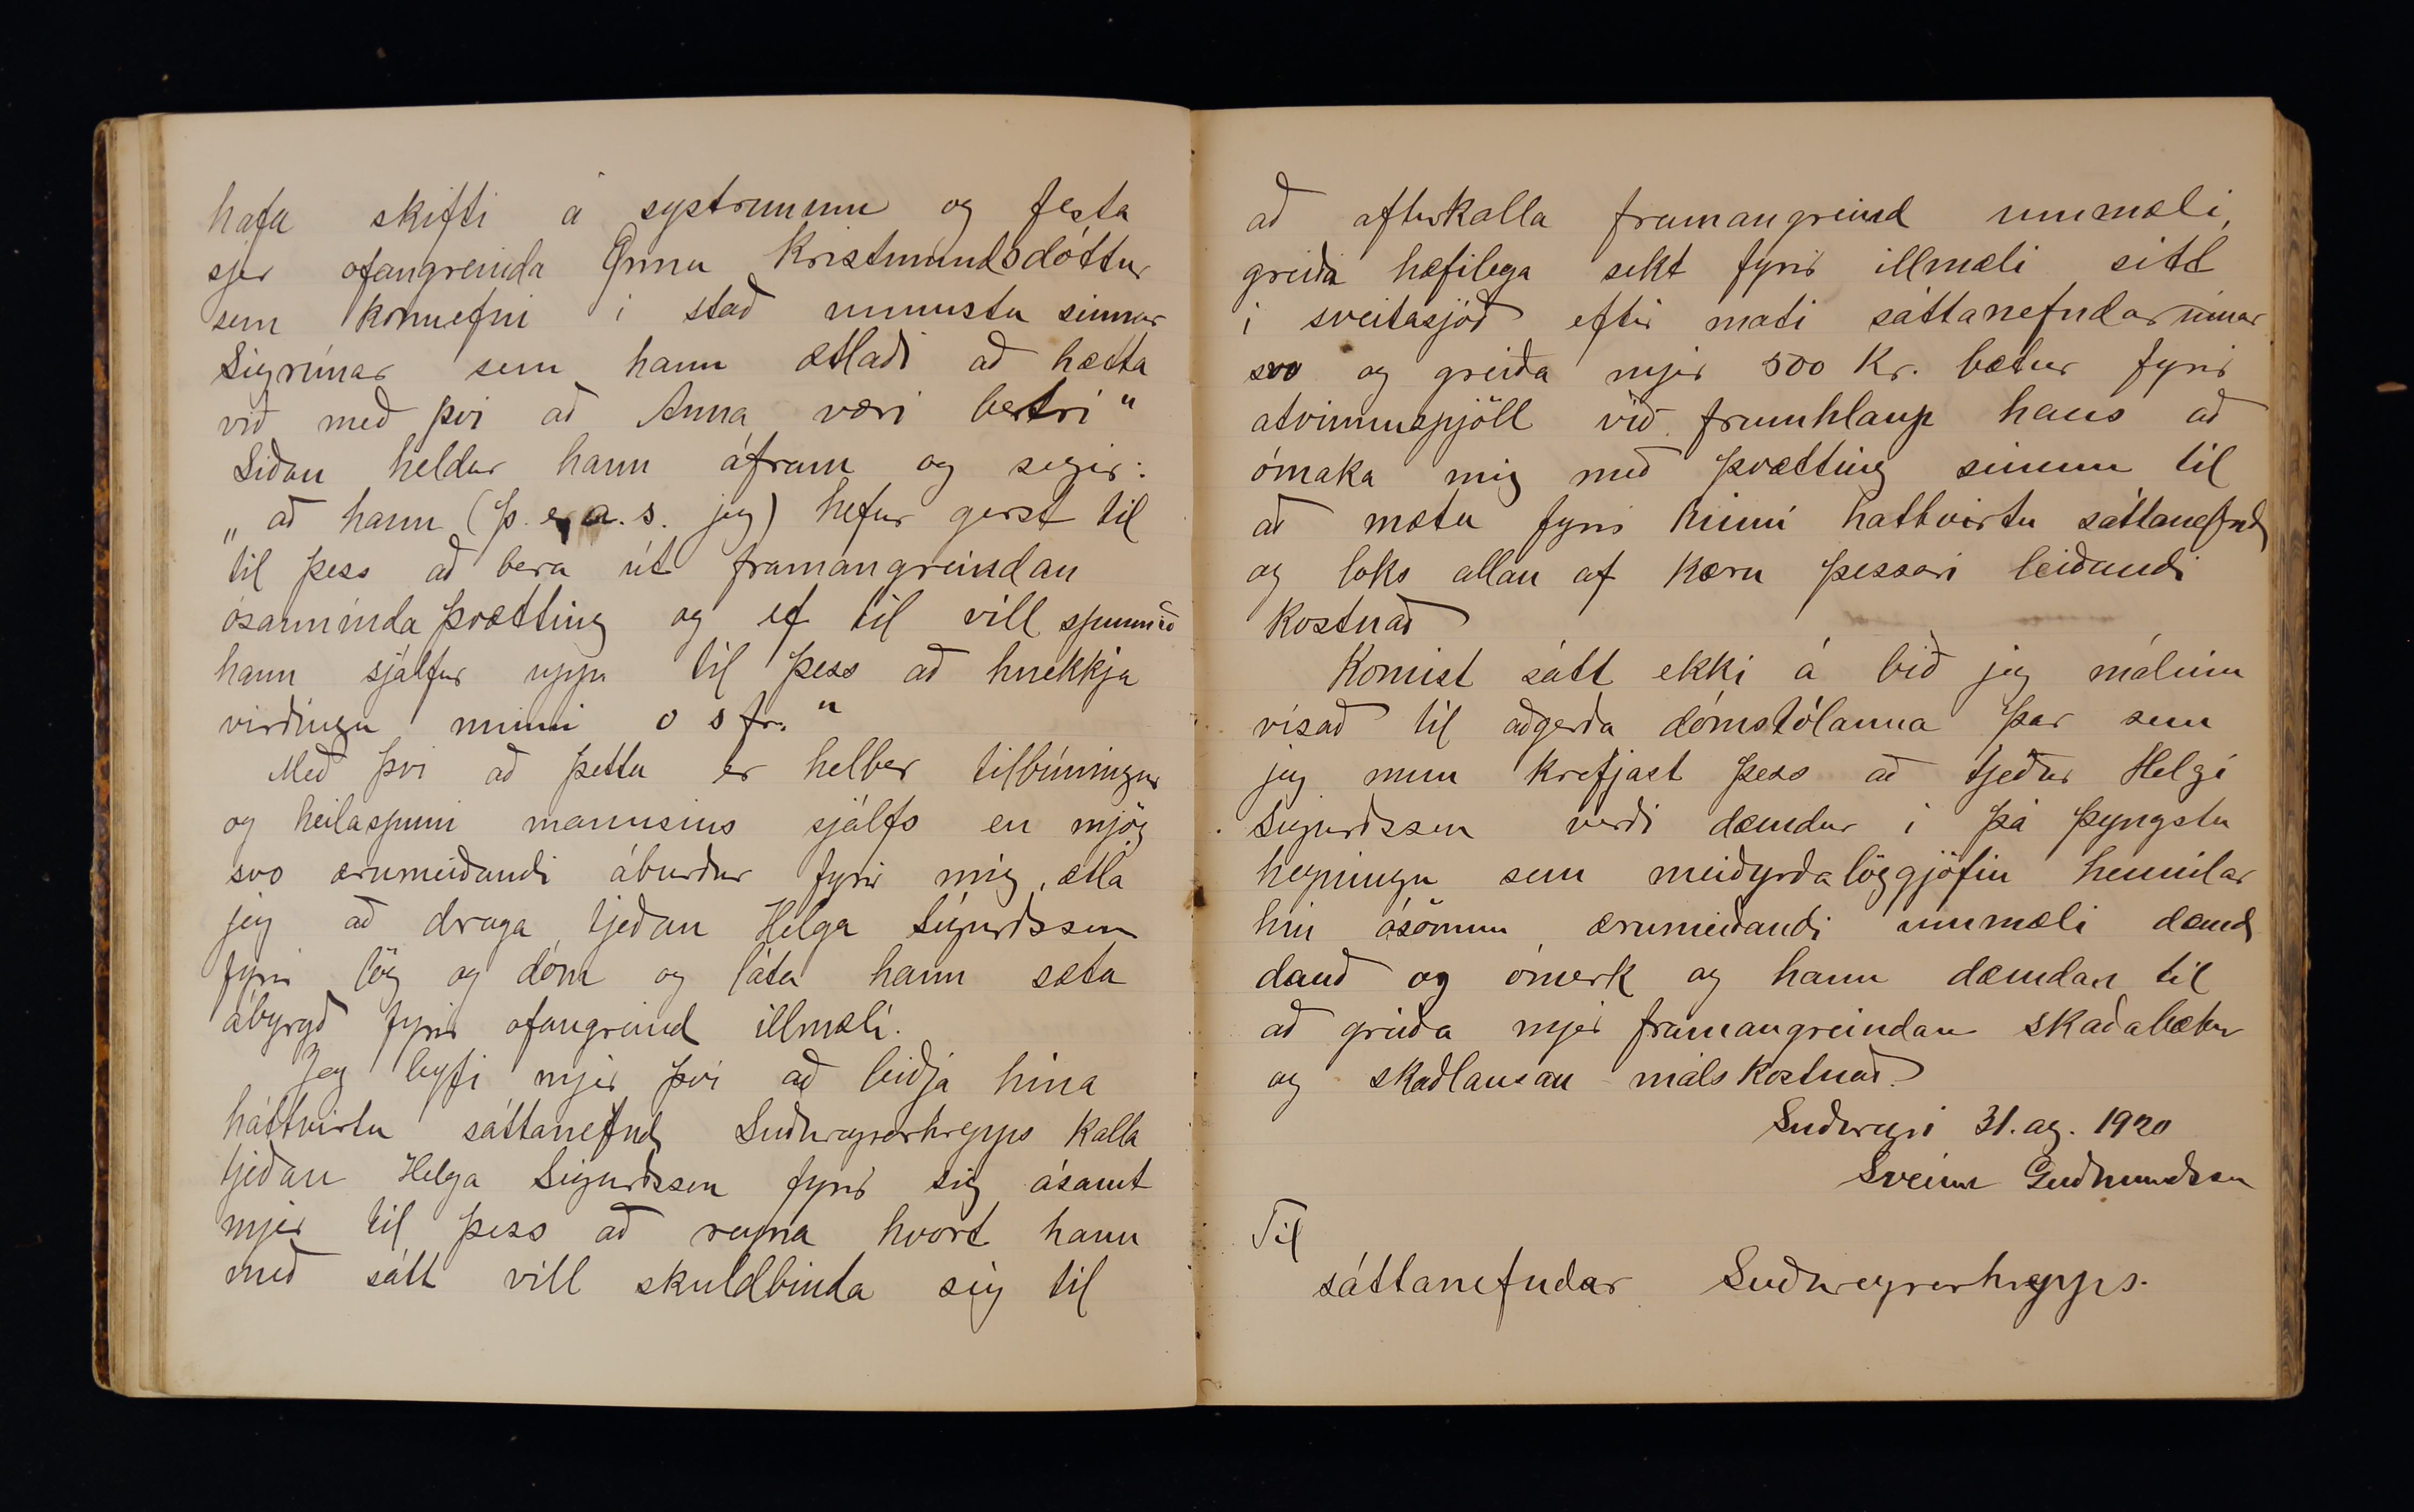 hafa skifti á systrunum og festa
sjer ofangreinda Önnu Kristmundsdóttur
sem konuefni í stað unnustu sinnar
Sigrúnar sem hann ætlaði að hætta
við með því að Anna væri betri"
Síðan heldur hann áfram og segir:
„að hann (þ. e. a. s. jeg) hefur gerst til
til þess að bera út framangreindan
ósanninda þvætting og ef til vill spunnið
hann sjálfur upp til þess að hnekkja
virðingu minni o s fr."
Með því að þetta er helber tilbúningur
og heilaspuni mannsins sjálfs en mjög
svo ærumeiðandi áburður fyrir mig, ætla
jeg að draga tjeðan Helga Sigurðsson
fyrir lög og dóm og láta hann sæta
ábyrgð fyrir ofangreind illmæli.
Jeg leyfi mjer því að beiðja hina
háttvirtu sáttanefnd Suðureyrarhrepps kalla
tjeðan Helga Sigurðsson fyrir sig ásamt
mjer til þess að reyna hvort hann
með sátt vill skuldbinda sig til
að afturkalla framangreind ummæli,
greiða hæfilega sekt fyrir illmæli sitt
í sveitasjóð eftir mati sáttanefndarinnar
svo og greiða mjer 500 kr. bætur fyrir
atvinnuspjöll við frumhlaup hans að
ómaka mig með þvætting sinum til
að mæta fyrir hinni háttvirtu sáttanefnd
og loks allan af kæru þessari leiðandi
kostnað
Komist sátt ekki á bið jeg málinu
vísað til aðgerða dómstólanna þar sem
jeg mun krefjast þess að tjeður Helgi
Sigurðsson verði dæmdur í þá þyngstu
hegningu sem meiðyrðalöggjöfin heimilar
hin ósömu ærumeiðandi ummæli dæmd
dauð og ómerk og hann dæmdan til
að greiða mjer framangreindan skaðabætur
og skaðlausan málskostnað.
Suðureyri 31. ag. 1920
Sveinn Guðmundsson
Til
sáttanefndar Suðureyrarhrepps.